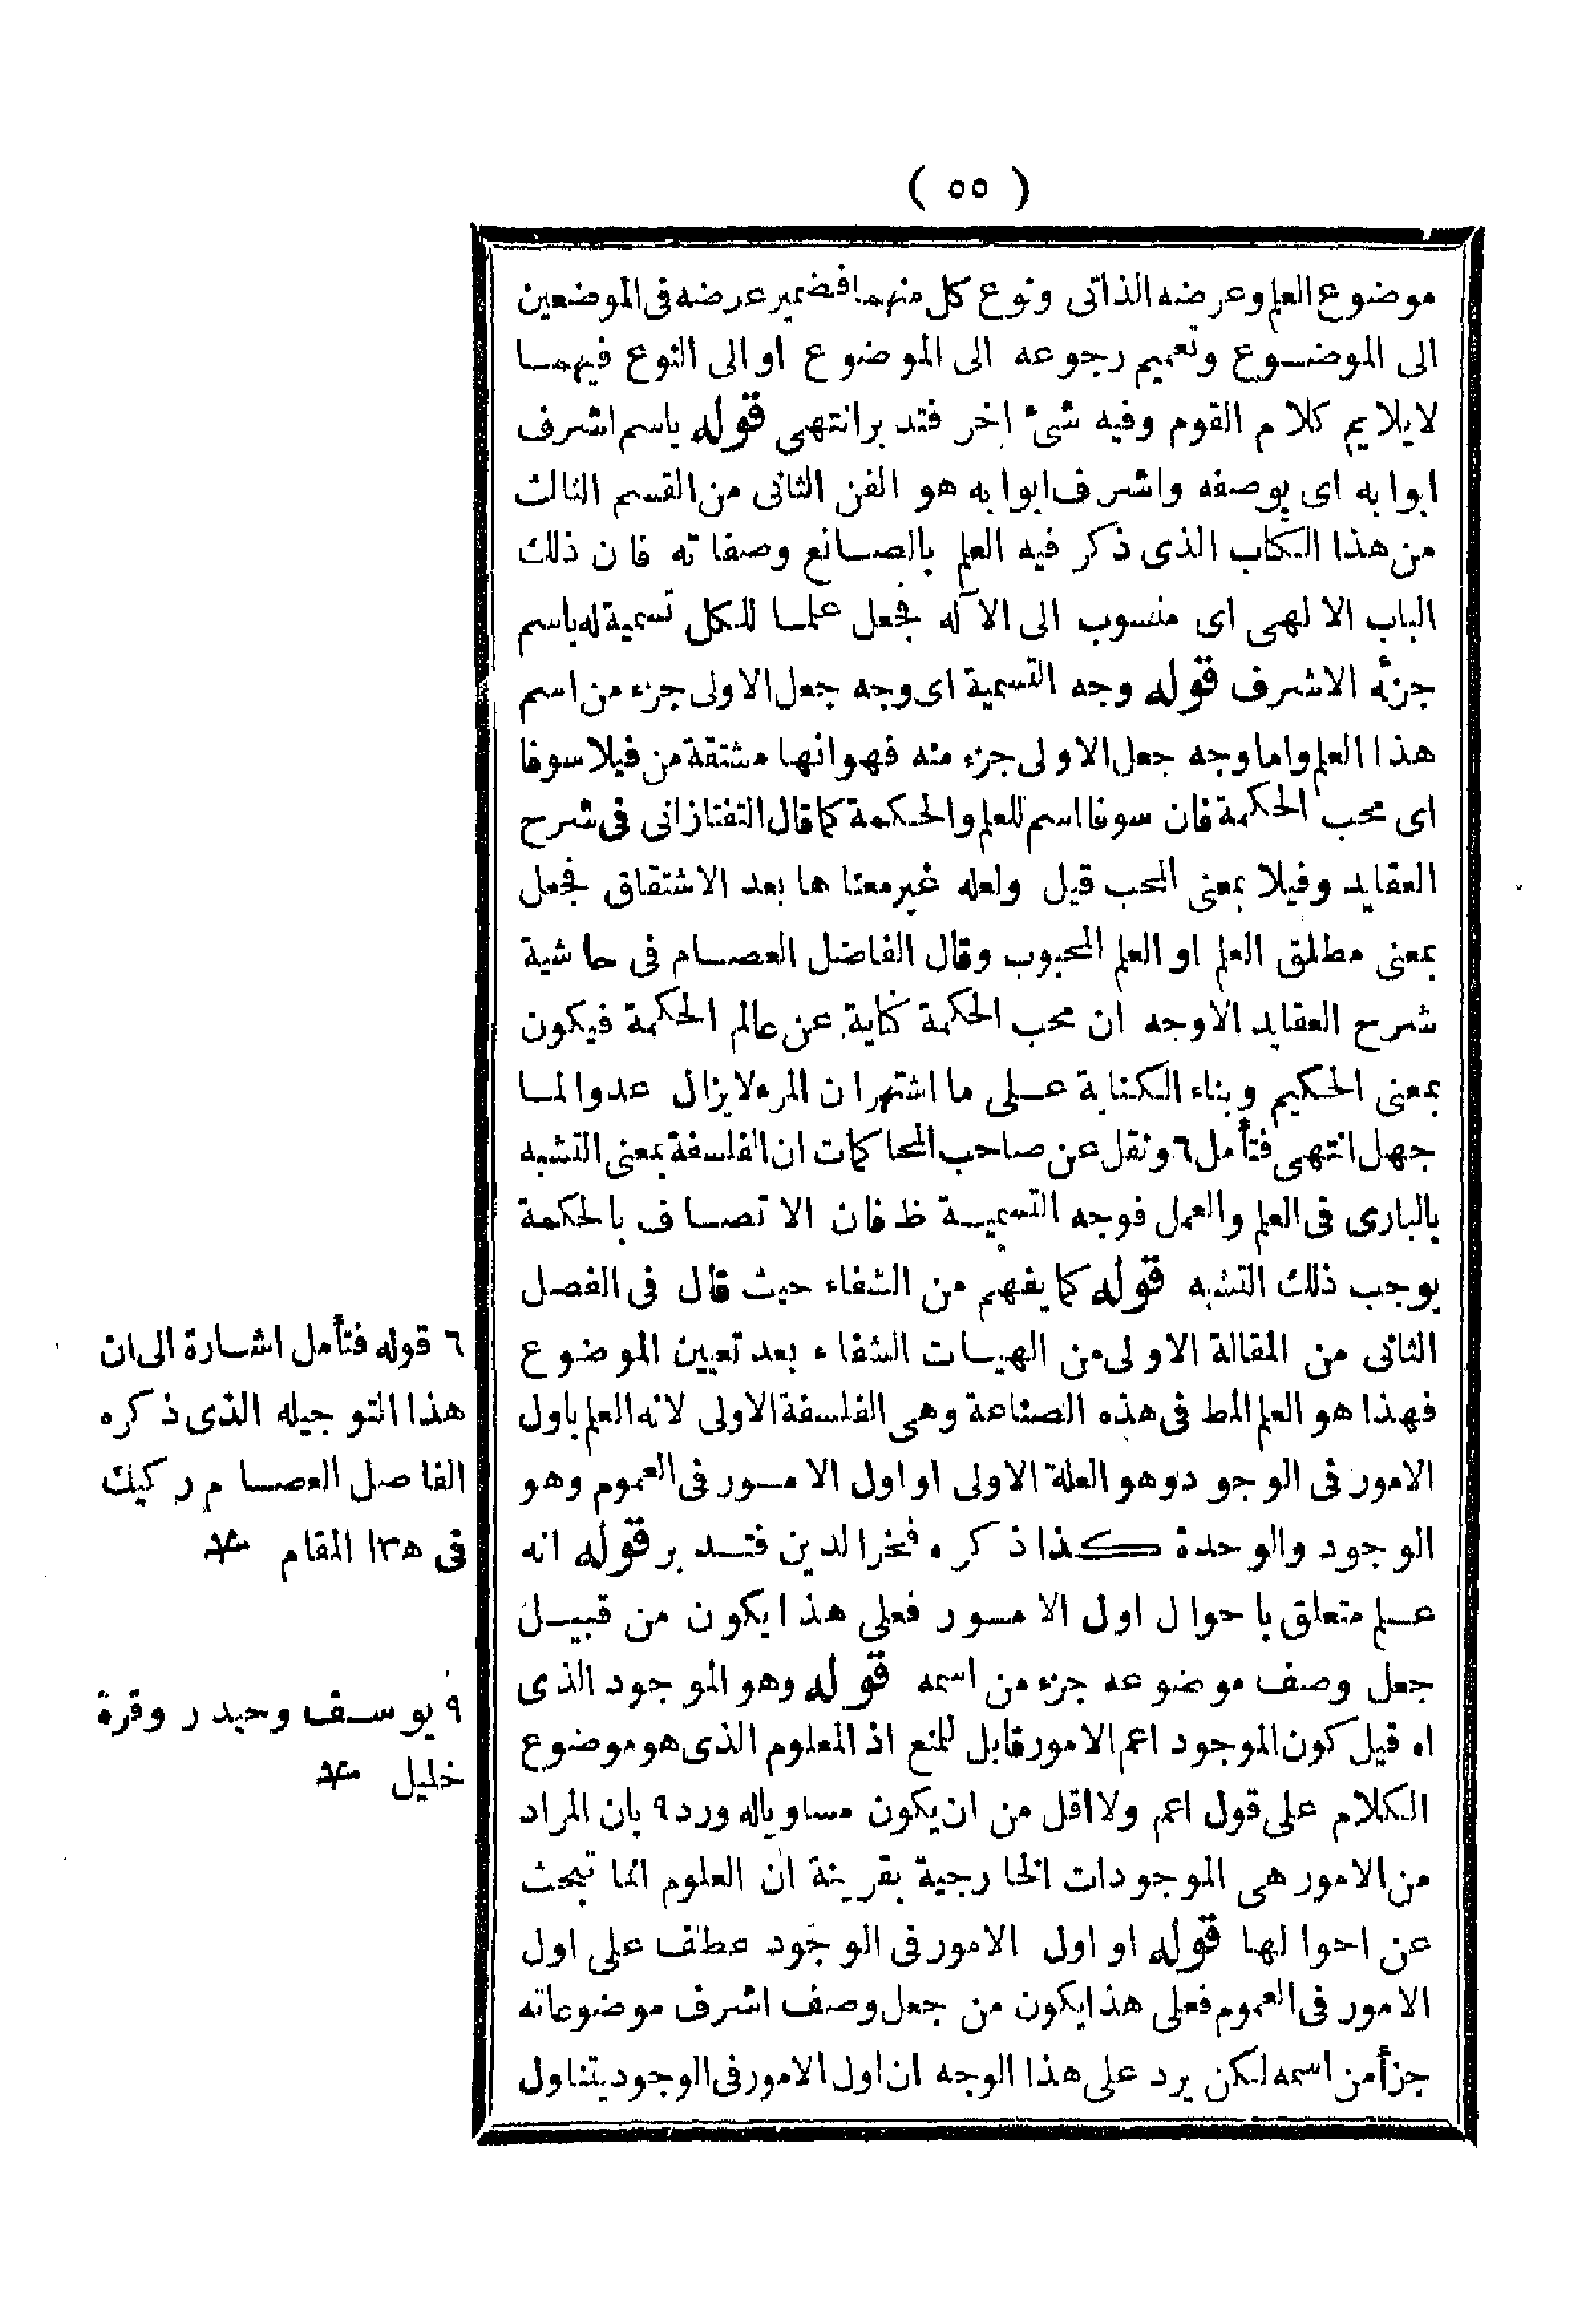 ( ٥٥ )
موضوع العلم وعرضه الذاتى ونوع كل منهما فضمير عرضه فى الموضعين
الى الموضوع وتعميم رجوعه الى الموضوع او الى النوع فيهما
لا يلايم كلام القوم وفيه شئ اخر فتدبر انتهى قوله باسم اشرف
ابوابه اى بوصفه واشرف ابوابه هو الفن الثانى من القسم الثالث
من هذا الكتاب الذى ذكر فيه العلم بالصانع وصفاته فان ذلك
الباب الالهى اى منسوب الى الآله فجعل علما للكل تسمية له باسم
جزئه الاشرف قوله وجه التسمية اى وجه جعل الاولى جزء من اسم
هذا العلم واما وجه جعل الاولى جزء منه فهو انها مشتقة من فيلاسوفا
اى محب الحكمة فان سوفا اسم للعلم والحكمة كما قال التفتازانى فى شرح
العقايد وفيلا بمعنى المحب قيل ولعله غير معناها بعد الاشتقاق فجعل
بمعنى مطلق العلم او العلم المحبوب وقال الفاضل العصام فى حاشية
شرح العقايد الاوجه ان محب الحكمة كناية عن عالم الحكمة فيكون
بمعنى الحكيم وبناء الكناية على ما اشتهر ان المرء لا يزال عدوا لما
جهل انتهى فتأمل ٦ ونقل عن صاحب المحاكمات ان الفلسفة بمعنى التشبه
بالبارى فى العلم والعمل فوجه التسمية ظ فان الاتصاف بالحكمة
يوجب ذلك التشبه قوله كما يفهم من الشفاء حيث قال فى الفصل
الثانى من المقالة الاولى من الهيات الشفاء بعد تعيين الموضوع
فهذا هو العلم المط فى هذه الصناعة وهى الفلسفة الاولى لانه العلم باول
الامور فى الوجود وهو العلة الاولى او اول الامور فى العموم وهو
الوجود والوحدة كذا ذكره فخر الدين فتدبر قوله انه
علم متعلق باحوال اول الامور فعلى هذا يكون من قبيل
جعل وصف موضوعه جزء من اسمه قوله وهو الموجود الذى
اه قيل كون الموجود اعم الامور قابل للمنع اذ المعلوم الذى هو موضوع
الكلام على قول اعم ولا اقل من ان يكون مساويا له ورد ٩ بان المراد
من الامور هى الموجودات الخارجية بقرينة ان العلوم انما تبحث
عن احوالها قوله او اول الامور فى الوجود عطف على اول
الامور فى العموم فعلى هذا يكون من جعل وصف اشرف موضوعاته
جزأ من اسمه لكن يرد على هذا الوجه ان اول الامور فى الوجود يتناول
٦ قوله فتأمل اشارة الى ان
هذا التوجيله الذى ذكره
الفاصل العصام ركيك
فى ه٣ا المقام
٩ يوسف وحيدر وقرة
خليل